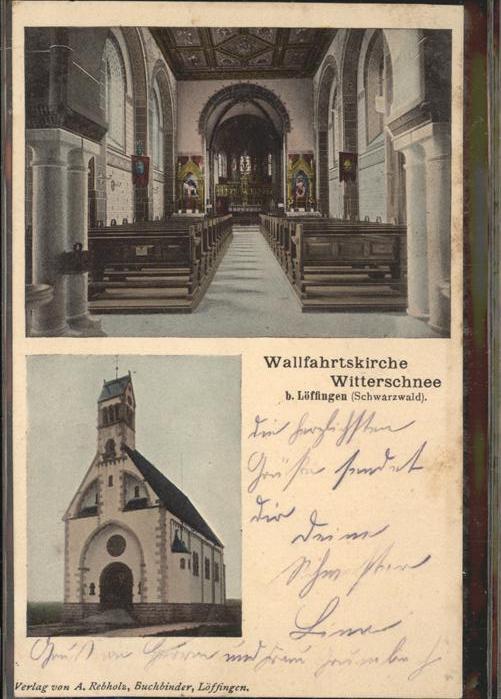 Wallfahrtskirche
Witterschnee
b. Löffingen (Schwarzwald).
die herzlichsten
Grüße sendet
dir
Deine
Schwester
Lina
Gruß an Herrn und Frau
Verlag von A. Rebholz, Buchbinder, Löffingen.